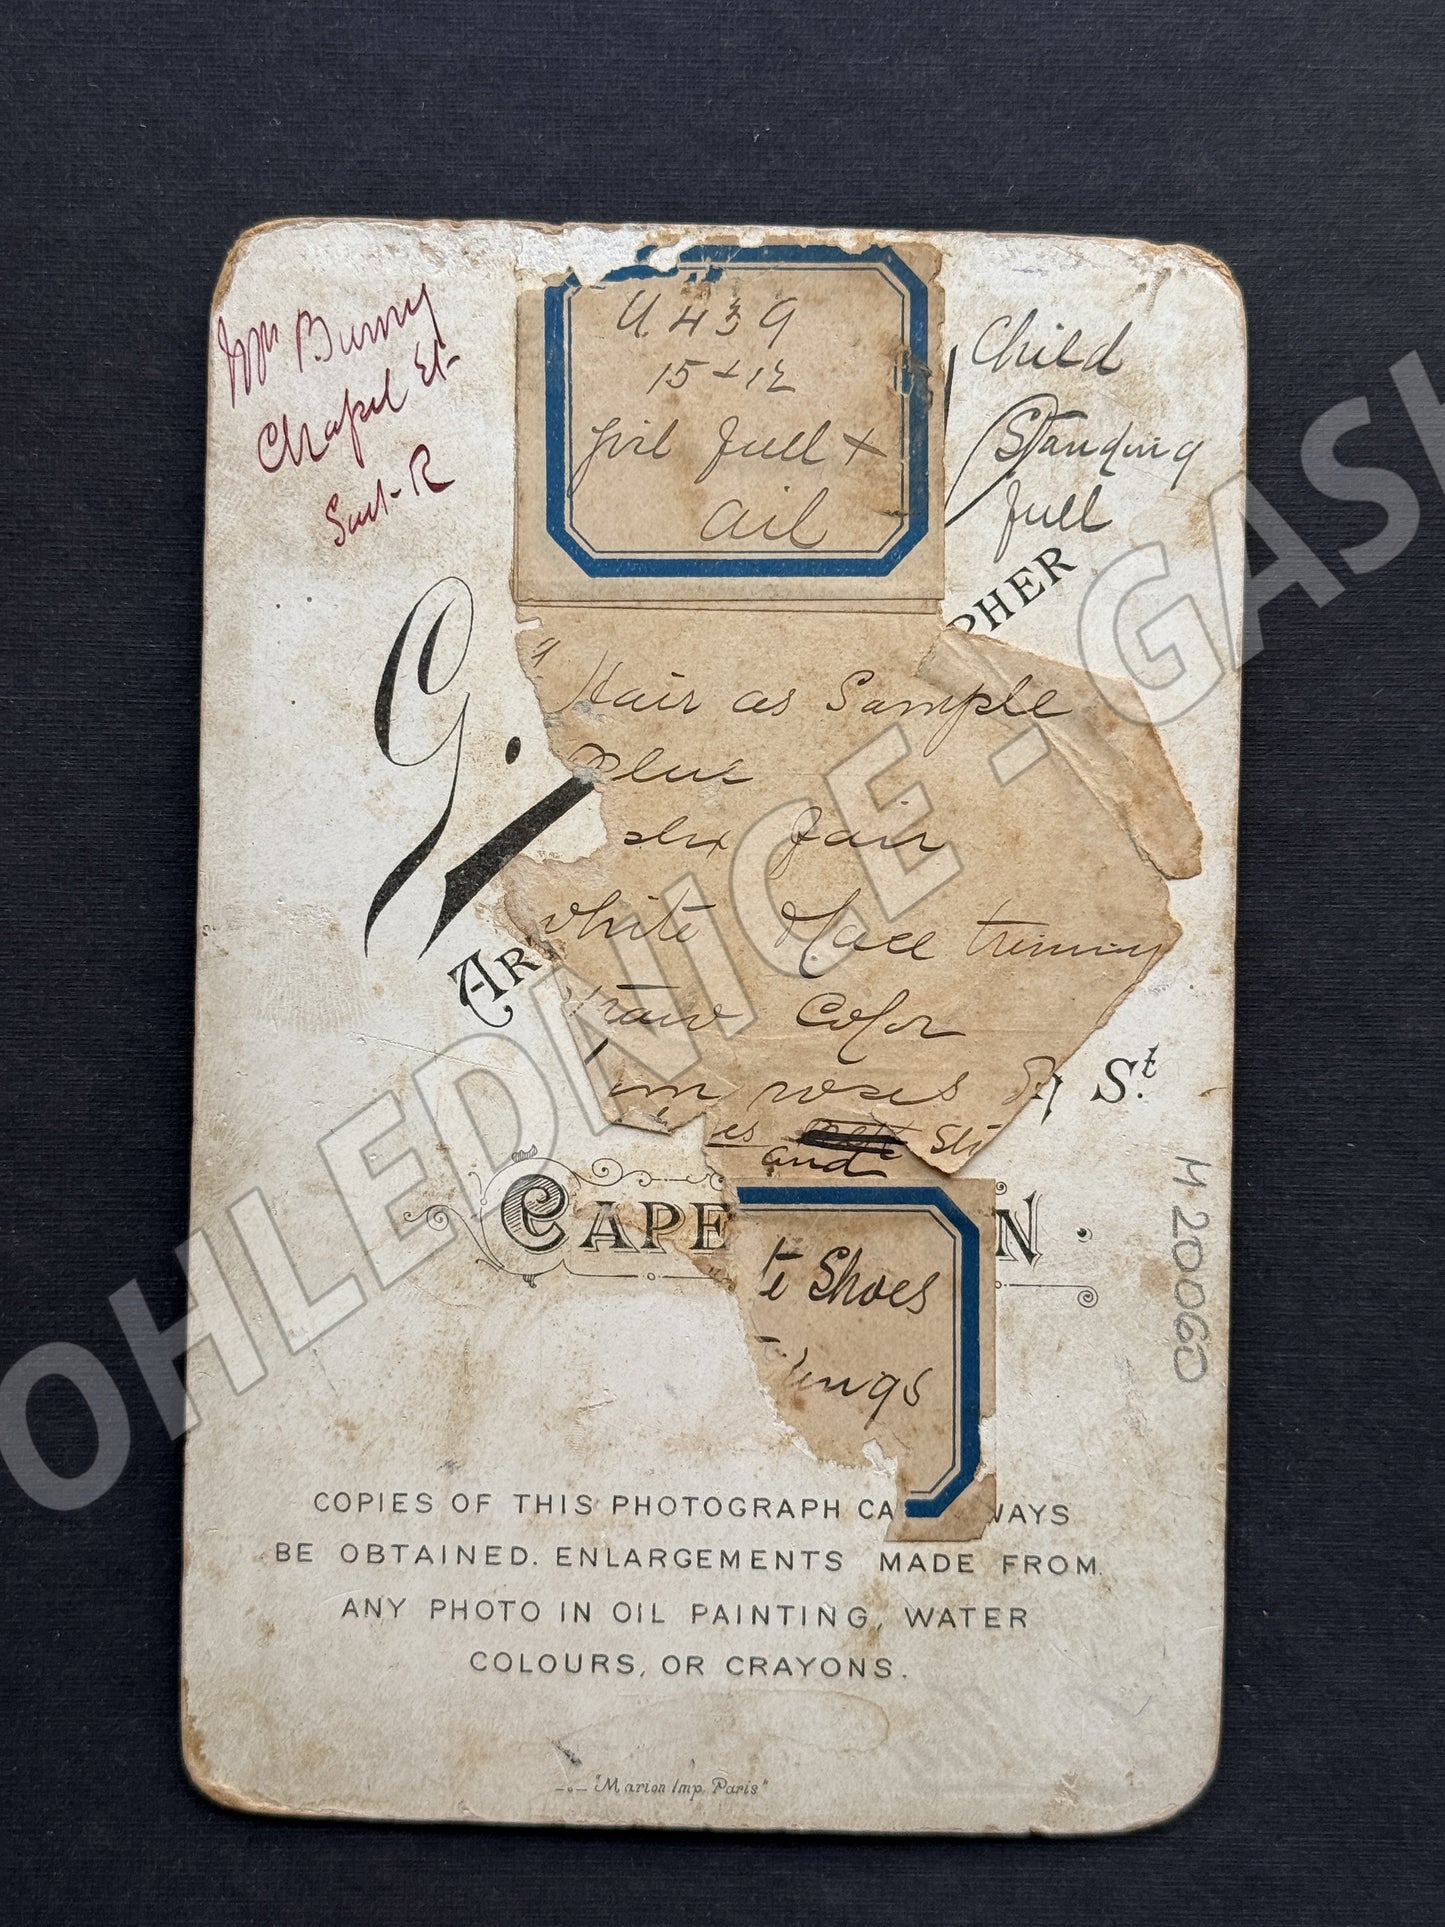 Mrs Burny
Chapel St
U 439
15 + 12
Girl full +
ail
Child
Standing
full
PHER
G.
" Hair as Sample
Blue
dr fair
White lace
Straw Color
roses
St.
and
CAPE N.
te Shoes
ings
M 20060
COPIES OF THIS PHOTOGRAPH CA WAYS
BE OBTAINED. ENLARGEMENTS MADE FROM
ANY PHOTO IN OIL PAINTING, WATER
COLOURS, OR CRAYONS.
"Marion Imp. Paris"
OHLEDNICE - GASH